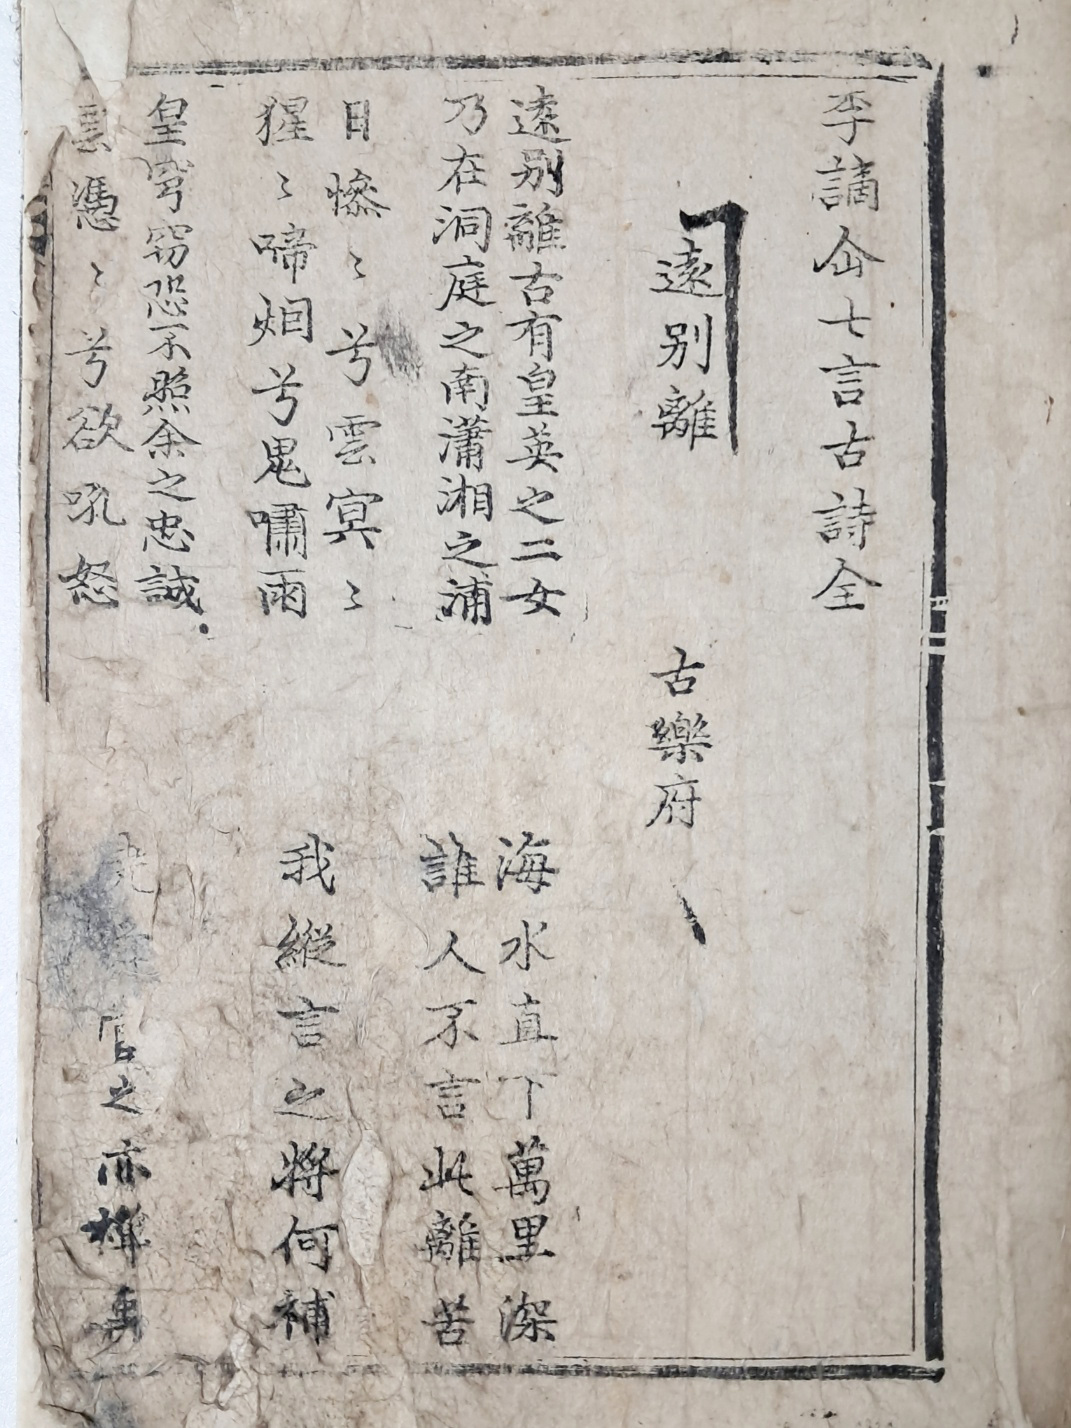 李謫仚七言古詩全
遠別離
古樂府
遠别離古有皇英之二女
乃在洞庭之南瀟湘之浦
海水直下萬里深
誰人不言此離苦
日慘〻兮雲冥〻
猩〻啼烟兮鬼嘯雨
我縱言之將何補
皇穹窃恐不照余之忠誠
雲憑〻兮欲吼怒
堯舜當之亦禪禹